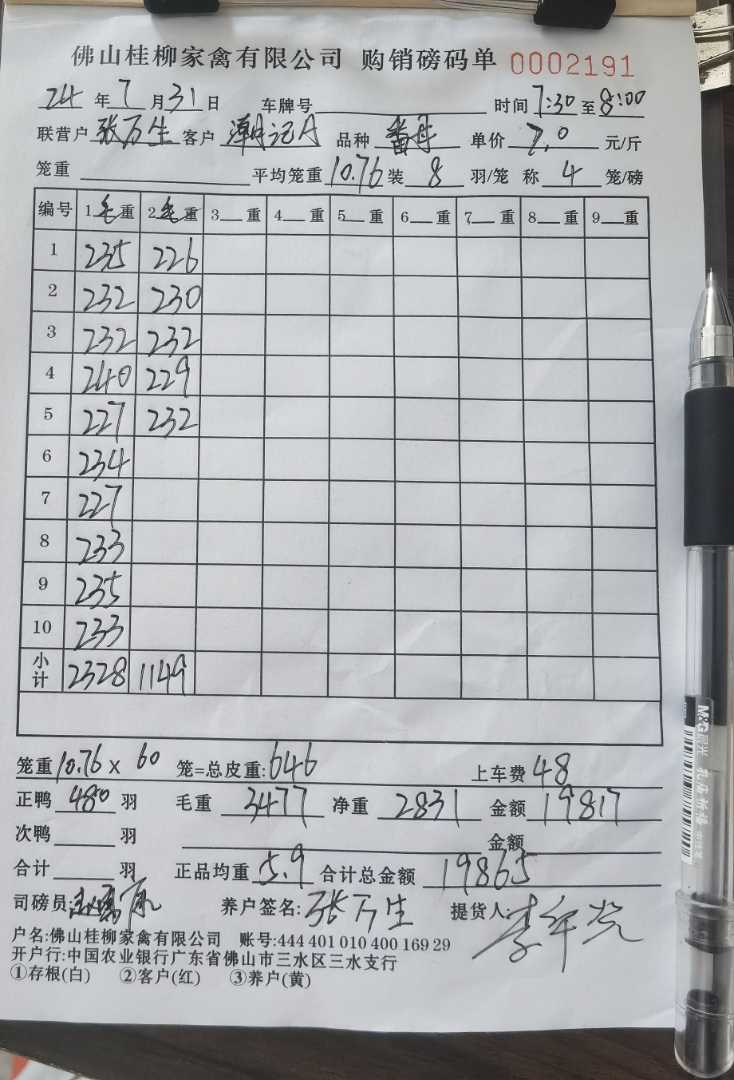 佛山桂柳家禽有限公司 购销磅码单 0002191
24 年 7 月 31 日 车牌号 时间 7:30 至 8:00
联营户 张万生 客户 潮记A 品种 番母 单价 7.0 元/斤
笼重 平均笼重 10.76 装 8 羽/笼 称 4 笼/磅
编号 1 毛 重 2 毛 重 3 重 4 重 5 重 6 重 7 重 8 重 9 重
1 235 226
2 232 230
3 232 232
4 240 229
5 227 232
6 234
7 227
8 233
9 235
10 233
小计 2328 1149
笼重 10.76 × 60 笼=总皮重: 646 上车费 48
正鸭 480 羽 毛重 3477 净重 2831 金额 19817
次鸭 羽 金额
合计 羽 正品均重 5.9 合计总金额 19865
司磅员: 养户签名: 张万生 提货人:
户名:佛山桂柳家禽有限公司 账号:444 401 010 400 169 29
开户行:中国农业银行广东省佛山市三水区三水支行
①存根(白) ②客户(红) ③养户(黄)
M&G 晨光 孔庙祈福